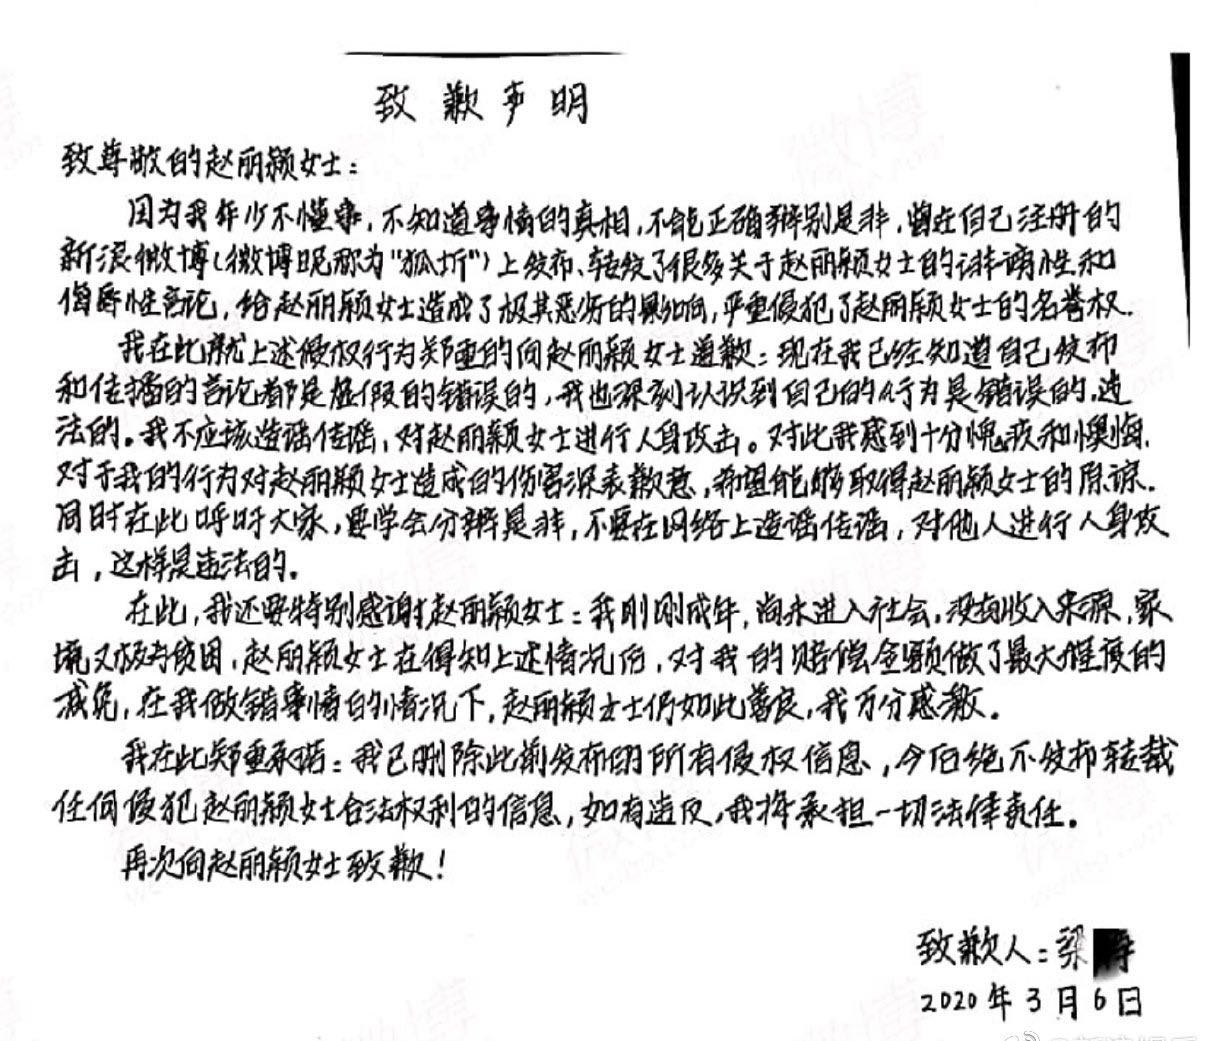 致歉声明
致尊敬的赵丽颖女士:
因为我年少不懂事,不知道事情的真相,不能正确辨别是非,曾在自己注册的
新浪微博(微博昵称为"狐圻")上发布、转发了很多关于赵丽颖女士的诽谤性和
侮辱性言论,给赵丽颖女士造成了极其恶劣的影响,严重侵犯了赵丽颖女士的名誉权.
我在此就上述侵权行为郑重的向赵丽颖女士道歉:现在我已经知道自己发布
和传播的言论都是虚假的错误的,我也深刻认识到自己的行为是错误的.违
法的。我不应该造谣传谣,对赵丽颖女士进行人身攻击。对此我感到十分愧疚和懊悔.
对于我的行为对赵丽颖女士造成的伤害深表歉意,希望能够取得赵丽颖女士的原谅.
同时在此呼吁大家,要学会分辨是非,不要在网络上造谣传谣,对他人进行人身攻
击,这样是违法的。
在此,我还要特别感谢赵丽颖女士:我刚刚成年,尚未进入社会,没有收入来源,家
境又极为贫困,赵丽颖女士在得知上述情况后,对我的赔偿金额做了最大程度的
减免,在我做错事情的情况下,赵丽颖女士仍如此善良,我万分感激。
我在此郑重承诺:我已删除此前发布的所有侵权信息,今后绝不发布转载
任何侵犯赵丽颖女士合法权利的信息,如有违反,我将承担一切法律责任。
再次向赵丽颖女士致歉!
致歉人:梁
2020年3月6日